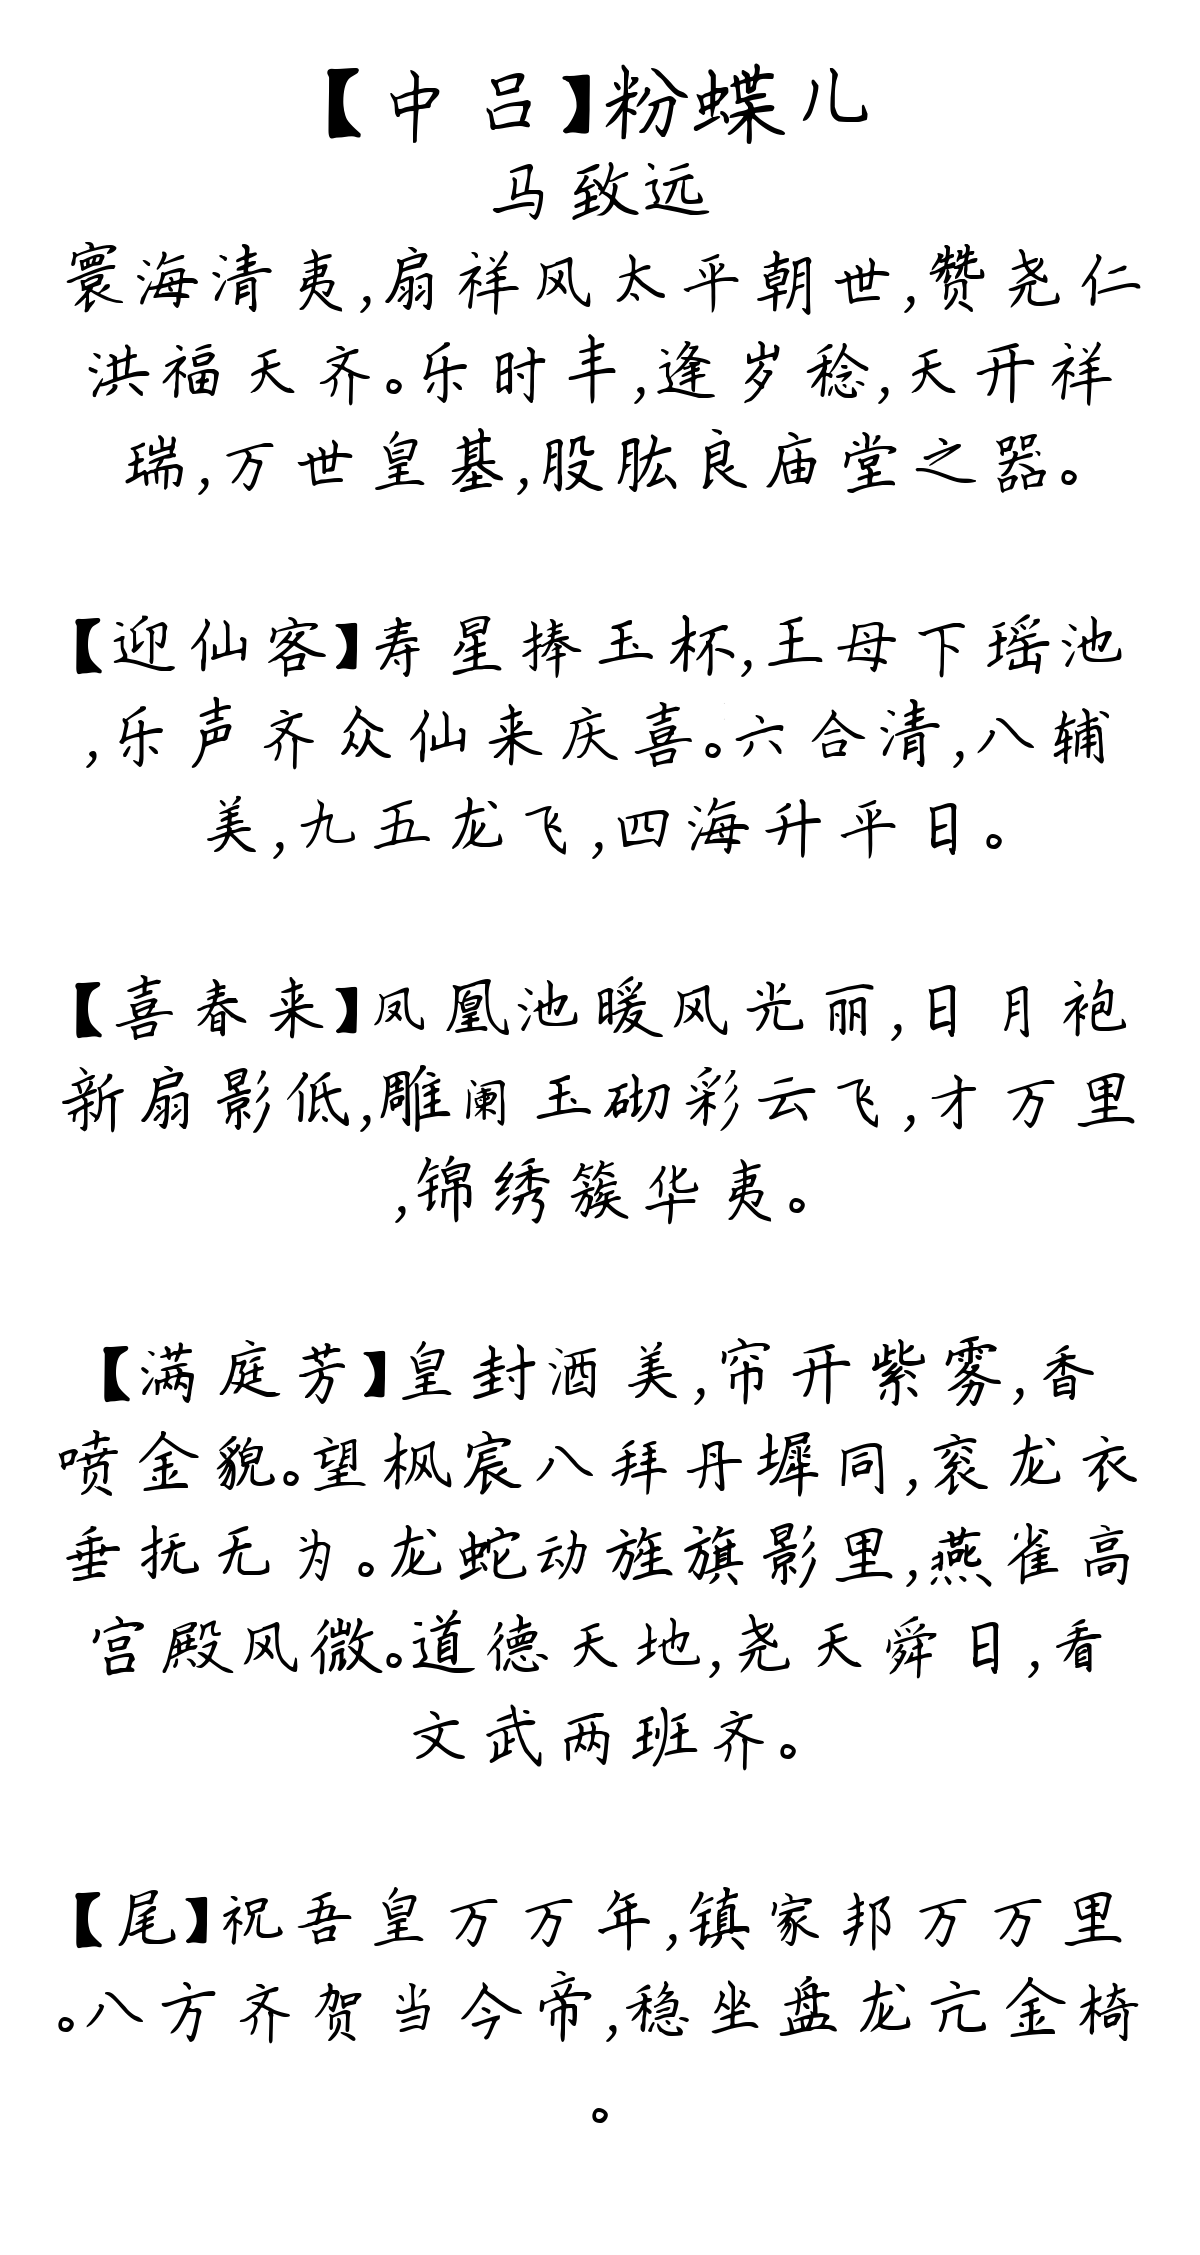 【中吕】粉蝶儿
马致远
寰海清夷,扇祥风太平朝世,赞尧仁
洪福天齐。乐时丰,逢岁稔,天开祥
瑞,万世皇基,股肱良庙堂之器。
【迎仙客】寿星捧玉杯,王母下瑶池
,乐声齐众仙来庆喜。六合清,八辅
美,九五龙飞,四海升平日。
【喜春来】凤凰池暖风光丽,日月袍
新扇影低,雕阑玉砌彩云飞,才万里
,锦绣簇华夷。
【满庭芳】皇封酒美,帘开紫雾,香
喷金貌。望枫宸八拜丹墀同,衮龙衣
垂抚无为。龙蛇动旌旗影里,燕雀高
宫殿风微。道德天地,尧天舜日,看
文武两班齐。
【尾】祝吾皇万万年,镇家邦万万里
。八方齐贺当今帝,稳坐盘龙亢金椅
。